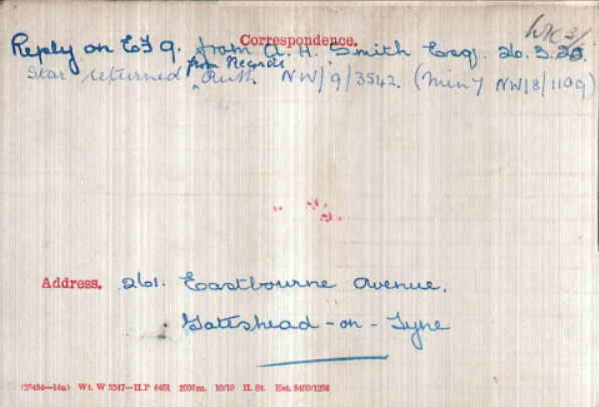 Correspondence.
Reply on EF 9. from A. H. Smith Esq. 26.3.23.
Star returned from Records Auth. NW/9/3542. (Min 7 NW/8/1109)
Address. 261. Eastbourne Avenue,
Gateshead-on-Tyne
Wt. W 5347—H.P 10/19 H. St.